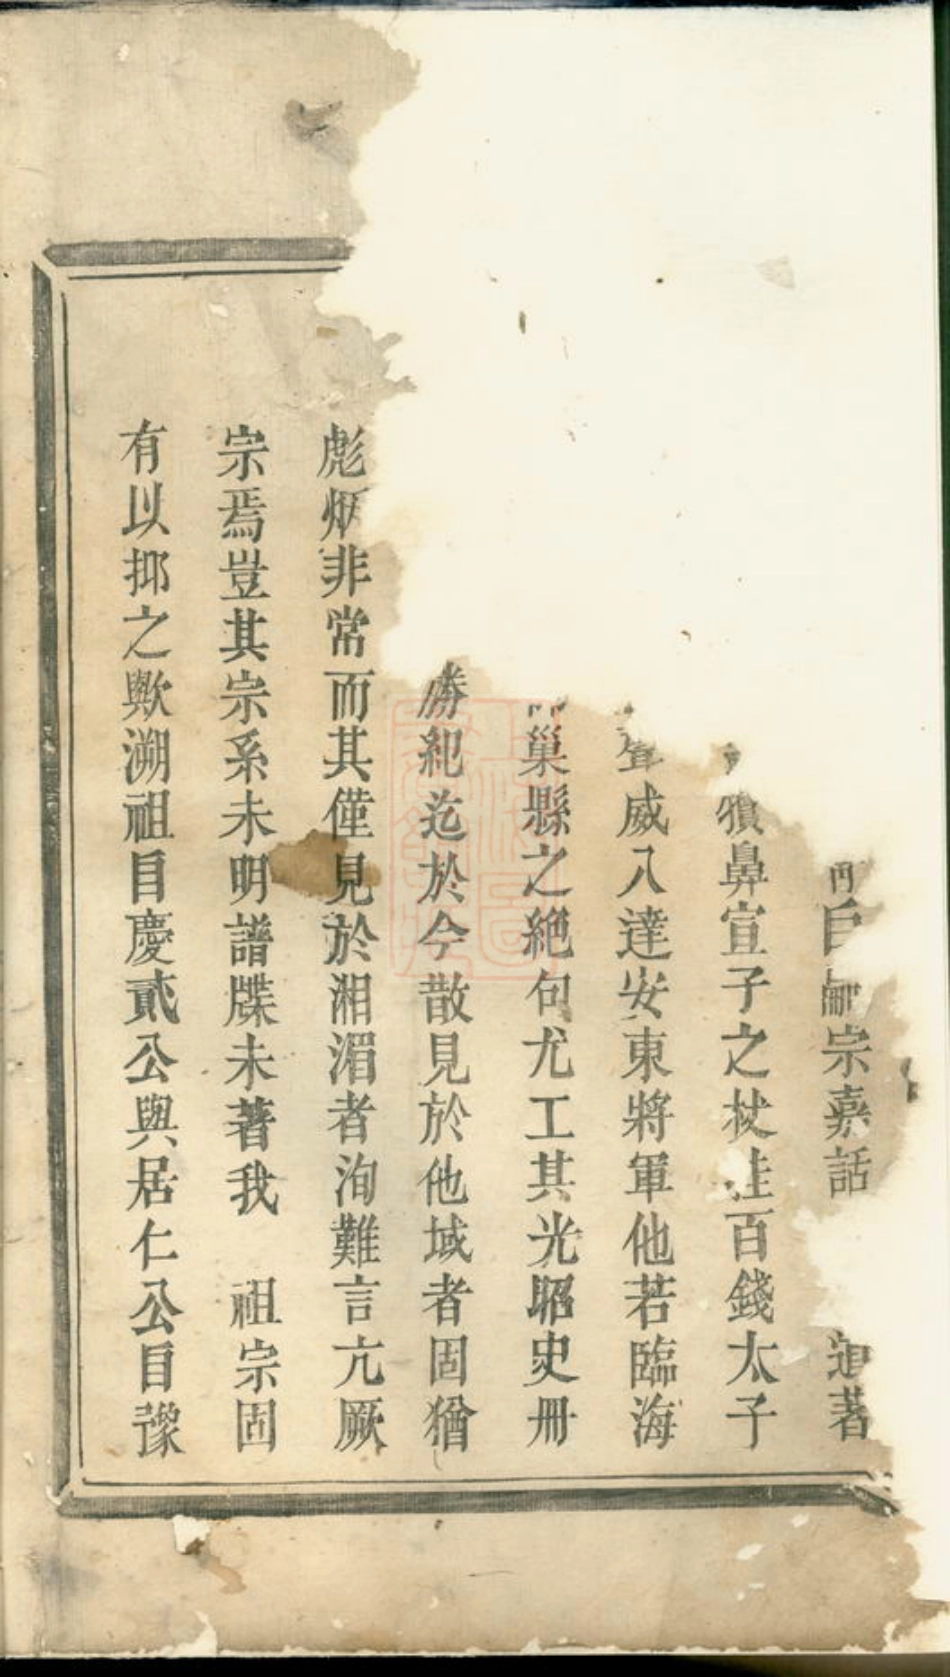 宗嘉話 著
犢鼻宣子之杖挂百錢太子
聲威八達安東將軍他若臨海
巢縣之絕句尤工其光昭史冊
勝紀迄於今散見於他域者固猶
彪炳非常而其僅見於湘湄者洵難言亢厥
宗焉豈其宗系未明譜牒未著我 祖宗固
有以抑之歟溯祖自慶貳公與居仁公自豫